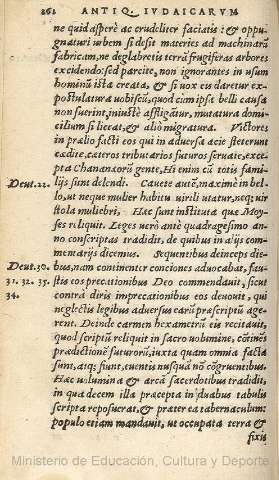 262 ANTIQ. IVDAICARVM
ne quid asperè ac crudeliter faciatis: & oppu-
gnaturi urbem si desit materies ad machinarũ
fabricam, ne deglabretis terrã frugiferas arbores
excidendo: sed parcite, non ignorantes in usum
hominũ ista creata, & si uox eis daretur ex-
postulatura uobiscũ, quod cùm ipsæ belli causa
non fuerint, iniustè affligãtur, mutatura domi-
cilium si liceat, & aliò migratura. Victores
in prælio facti eos qui in aduersa acie steterunt
cædite, cæteros tributarios futuros seruate, exce-
pta Chananæorũ gente, Hi enim cũ totis fami-
Deut.22. lijs sunt delendi. Cauete autẽ, maximè in bel-
lo, ut neque mulier habitu uirili utatur, neq; uir
stola muliebri. Hæc sunt instituta quæ Moy-
ses reliquit. Leges uerò antè quadragesimo an-
no conscriptas tradidit, de quibus in alijs com-
mentarijs dicemus. Sequentibus deinceps die-
Deut.30. bus, nam continenter conciones aduocabat, fau-
31. 32. 33. stis eos precationibus Deo commendauit, sicut
34. contrà diris imprecationibus eos deuouit, qui
neglectis legibus aduersus earũ præscriptũ age-
rent. Deinde carmen hexametrũ eis recitauit,
quod scriptũ reliquit in sacro uolumine, cõtinẽs
prædictionẽ futurorũ, iuxta quam omnia facta
sunt, atq; fiunt, euentis nusquã nõ cõgruentibus.
Hæc uolumina & arcã sacerdotibus tradidit,
in qua decem illa præcepta in duabus tabulis
scripta reposuerat, & præter ea tabernaculum:
populo etiam mandauit, ut occupata terra &
fixis
Ministerio de Educación, Cultura y Deporte